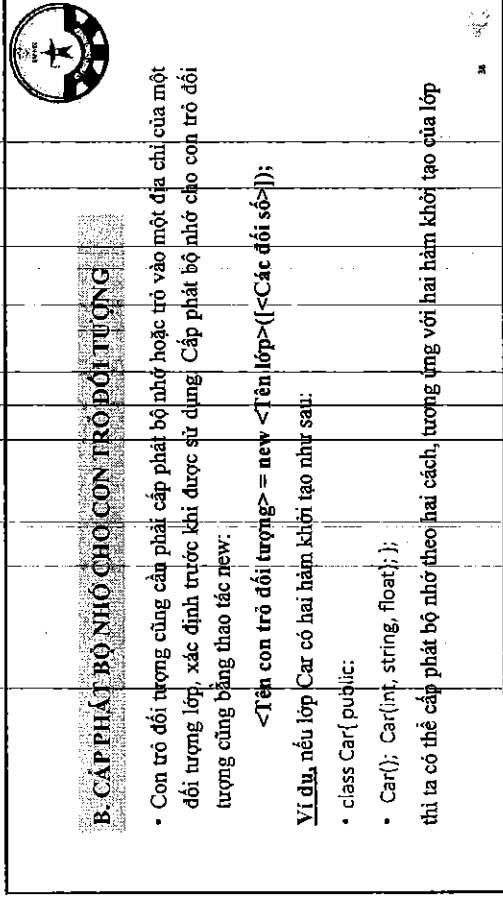 B. CẤP PHÁT BỘ NHỚ CHO CON TRỎ ĐỐI TƯỢNG
• Con trỏ đối tượng cũng cần phải cấp phát bộ nhớ hoặc trỏ vào một địa chỉ của một
đối tượng lớp, xác định trước khi được sử dụng. Cấp phát bộ nhớ cho con trỏ đối
tượng cũng bằng thao tác new:
<Tên con trỏ đối tượng> = new <Tên lớp>([<Các đối số>]);
Ví dụ, nếu lớp Car có hai hàm khởi tạo như sau:
• class Car{ public:
• Car(); Car(int, string, float); };
thì ta có thể cấp phát bộ nhớ theo hai cách, tương ứng với hai hàm khởi tạo của lớp